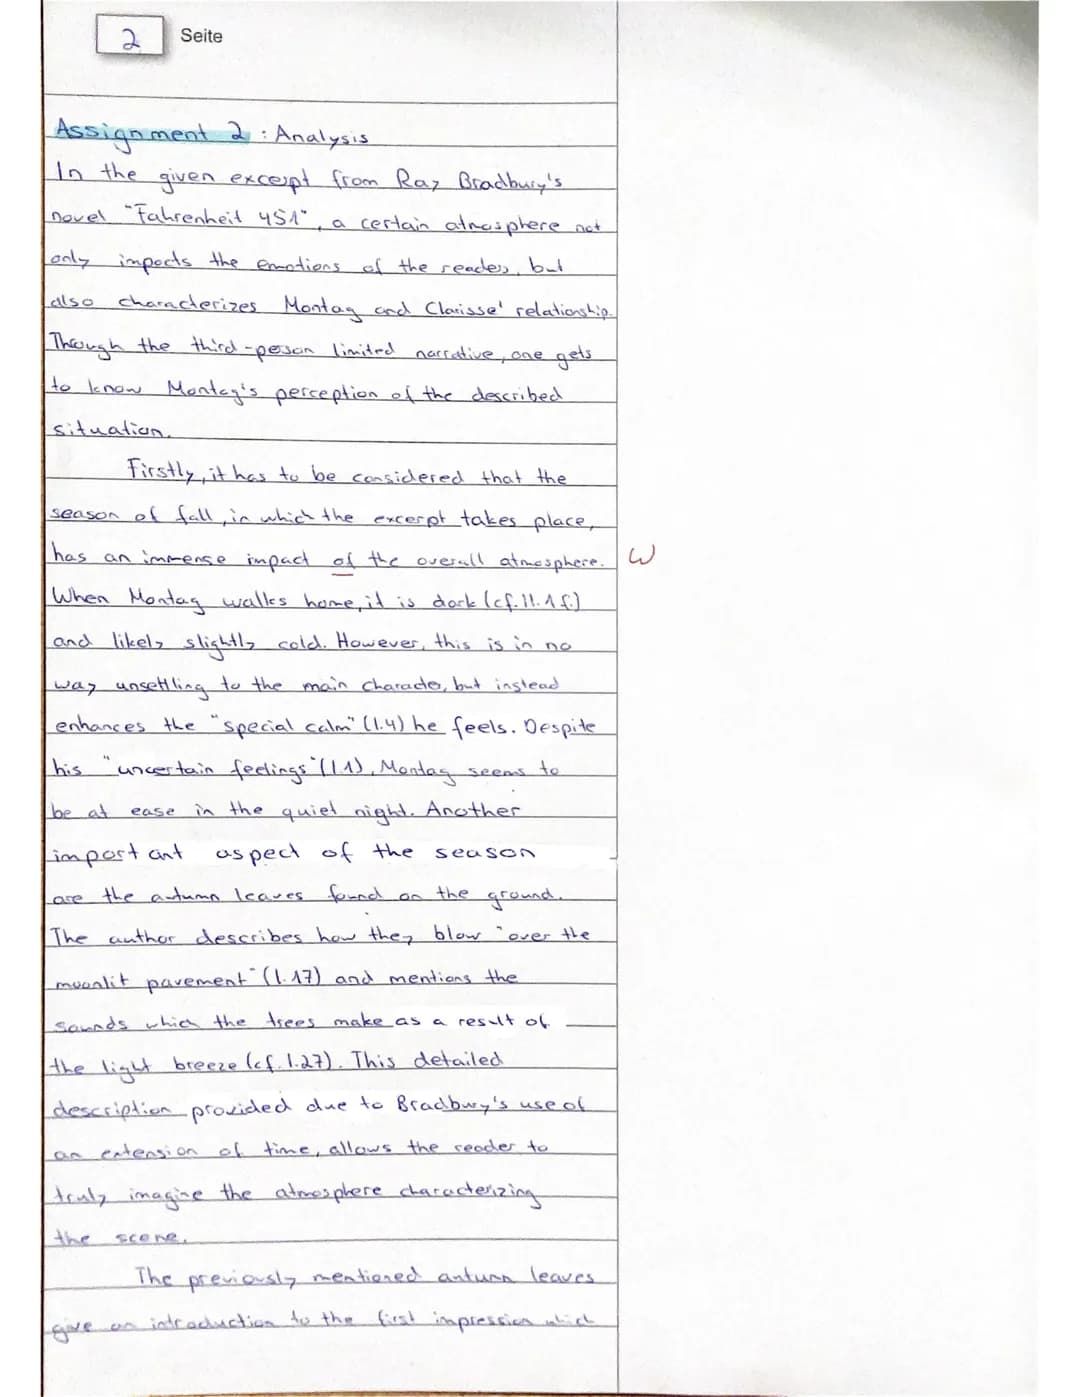 2 Seite
Assignment 2 : Analysis
In the given excerpt from Ray Bradbury's
novel "Fahrenheit 451", a certain atmosphere not
only impacts the emotions of the reader, but
also characterizes Montag and Clarisse' relationship.
Through the third-person limited narrative, one gets
to know Montag's perception of the described
situation.
Firstly, it has to be considered that the
season of fall, in which the excerpt takes place,
has an immense impact of the overall atmosphere. W
When Montag walks home, it is dark (cf. ll. 1 f.)
and likely slightly cold. However, this is in no
way unsettling to the main character, but instead
enhances the "special calm" (l.4) he feels. Despite
his "uncertain feelings" (l.1), Montag seems to
be at ease in the quiet night. Another
important aspect of the season
are the autumn leaves found on the ground.
The author describes how they blow "over the
moonlit pavement" (l.17) and mentions the
sounds which the trees make as a result of
the light breeze (cf. l.27). This detailed
description provided due to Bradbury's use of
an extension of time, allows the reader to
truly imagine the atmosphere characterizing
the scene.
The previously mentioned autumn leaves
give an introduction to the first impression which